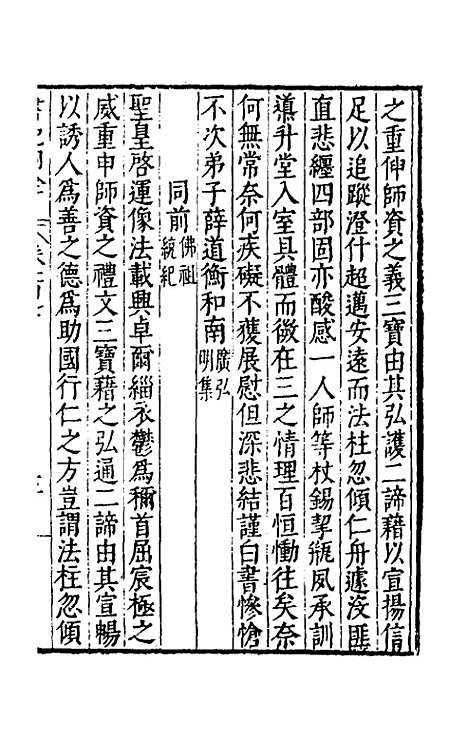 之重伸師資之義三寶由其弘護二諦藉以宣揚信
足以追蹤澄什超邁安遠而法柱忽傾仁舟遽沒匪
直悲纏四部固亦酸感一人師等杖錫挈瓶夙承訓
導升堂入室具體而微在三之情理百恒慟往矣奈
何無常奈何疾礙不獲展慰但深悲結謹白書慘愴
不次弟子薛道衡和南廣弘明集
同前佛祖統紀
聖皇啓運像法載興卓爾緇衣鬱爲稱首屈宸極之
威重申師資之禮文三寶藉之弘通二諦由其宣暢
以誘人爲善之德爲助國行仁之方豈謂法柱忽傾